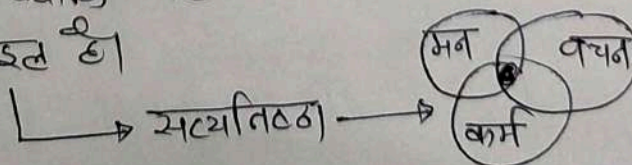 हल है।
सत्यनिष्ठा
मन
वचन
कर्म